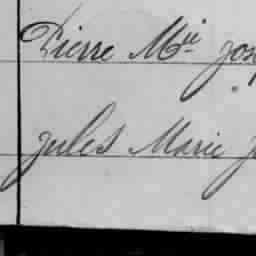 Pierre Mie Jos
Jules Marie J